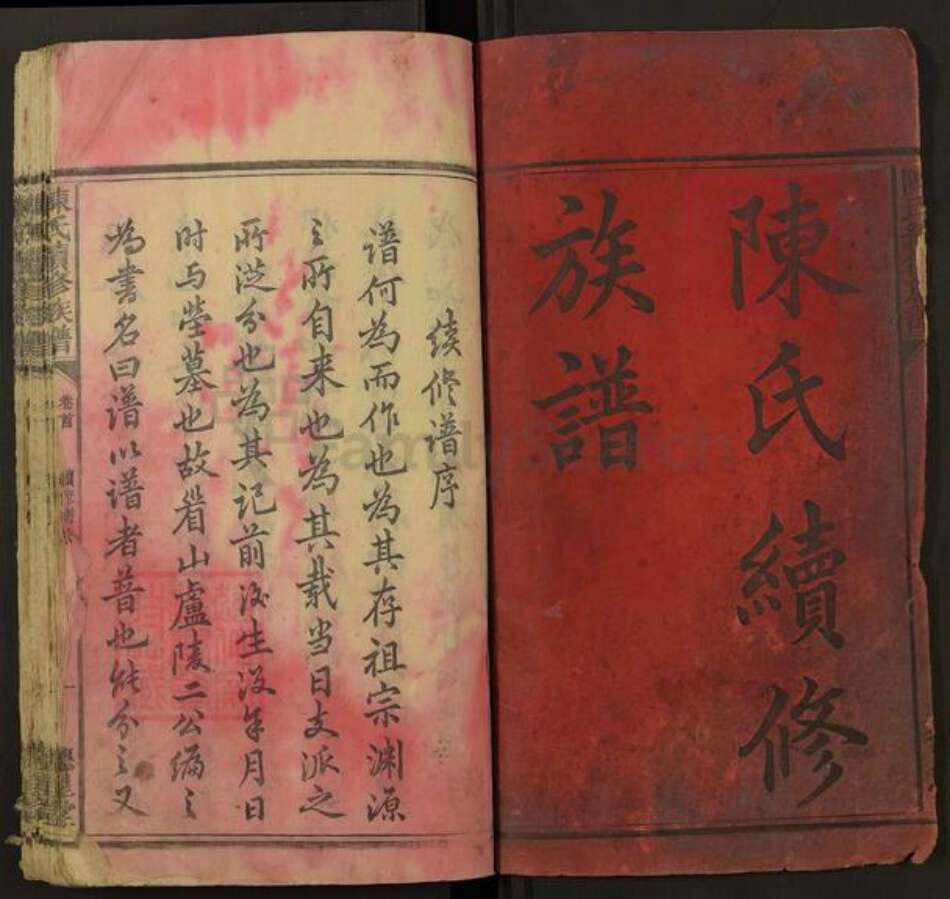 陳氏續修
族譜
续修谱序
谱何為而作也為其存祖宗渊源
之所自来也為其载当日支派之
所从分也為其记前后生没年月日
时与茔墓也故眉山盧陵二公编之
為書名曰谱以谱者普也能分之又
陳氏續修族譜
卷首